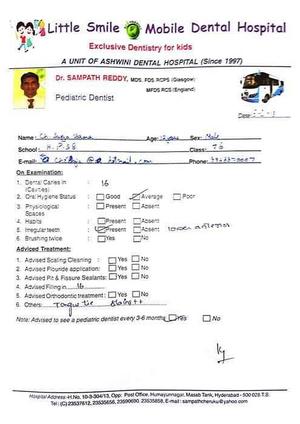 Little Smile Mobile Dental Hospital
Exclusive Dentistry for kids
A UNIT OF ASHWINI DENTAL HOSPITAL (Since 1997)
Dr. SAMPATH REDDY, MDS, FDS RCPS (Glasgow)
MFDS RCS (England)
Pediatric Dentist
Date:
Name: Age: Sex: Male
School: Class:
E-mail: Phone:
On Examination:
1. Dental Caries in 16
(Cavities)
2. Oral Hygiene Status : Good Average Poor
3. Physiological : Present Absent
Spaces
4. Habits : Present Absent
5. Irregular teeth : Present Absent lower anteriors
6. Brushing twice : Yes No
Adviced Treatment:
1. Advised Scaling Clearning : Yes No
2. Advised Flouride application: Yes No
3. Advised Pit & Fissure Sealants: Yes No
4. Advised Filling in 16
5. Advised Orthodontic treatment : Yes No
6. Others: Tongue tie
Note: Advised to see a pediatric dentist every 3-6 months Yes No
Hospital Address :- H.No. 10-3-304/13, Opp: Post Office, Humayunnagar, Masab Tank, Hyderabad - 500 028 T.S.
Tel: (C) 23537612, 23535656, 23590690, 23535858, E-mail : sampathcheruku@yahoo.com